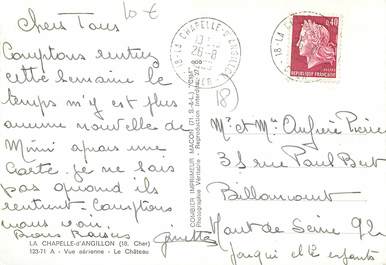 Chers Tous
Comptons rentrer
cette semaine le
temps n'y est plus
aucune nouvelle de
Mimi après une
carte. je ne sais
pas quand ils
rentrent Comptons
vous voir.
Bons Baisers
Ginette
LA CHAPELLE-d'ANGILLON (18. Cher)
123-71 A - Vue aérienne - Le Château
10 €
COMBIER IMPRIMEUR MACON (71. S.-&-L.) "CIM"
Photographie Véritable - Reproduction Interdite
18 - LA CHAPELLE-D'ANGILLON
CHER
18
18 - LA CHAPELLE
0,40
REPUBLIQUE FRANÇAISE
Mr et Mme Pierre
31 rue Paul Bert
Billancourt
Haut de Seine 92
Jacqui et enfants